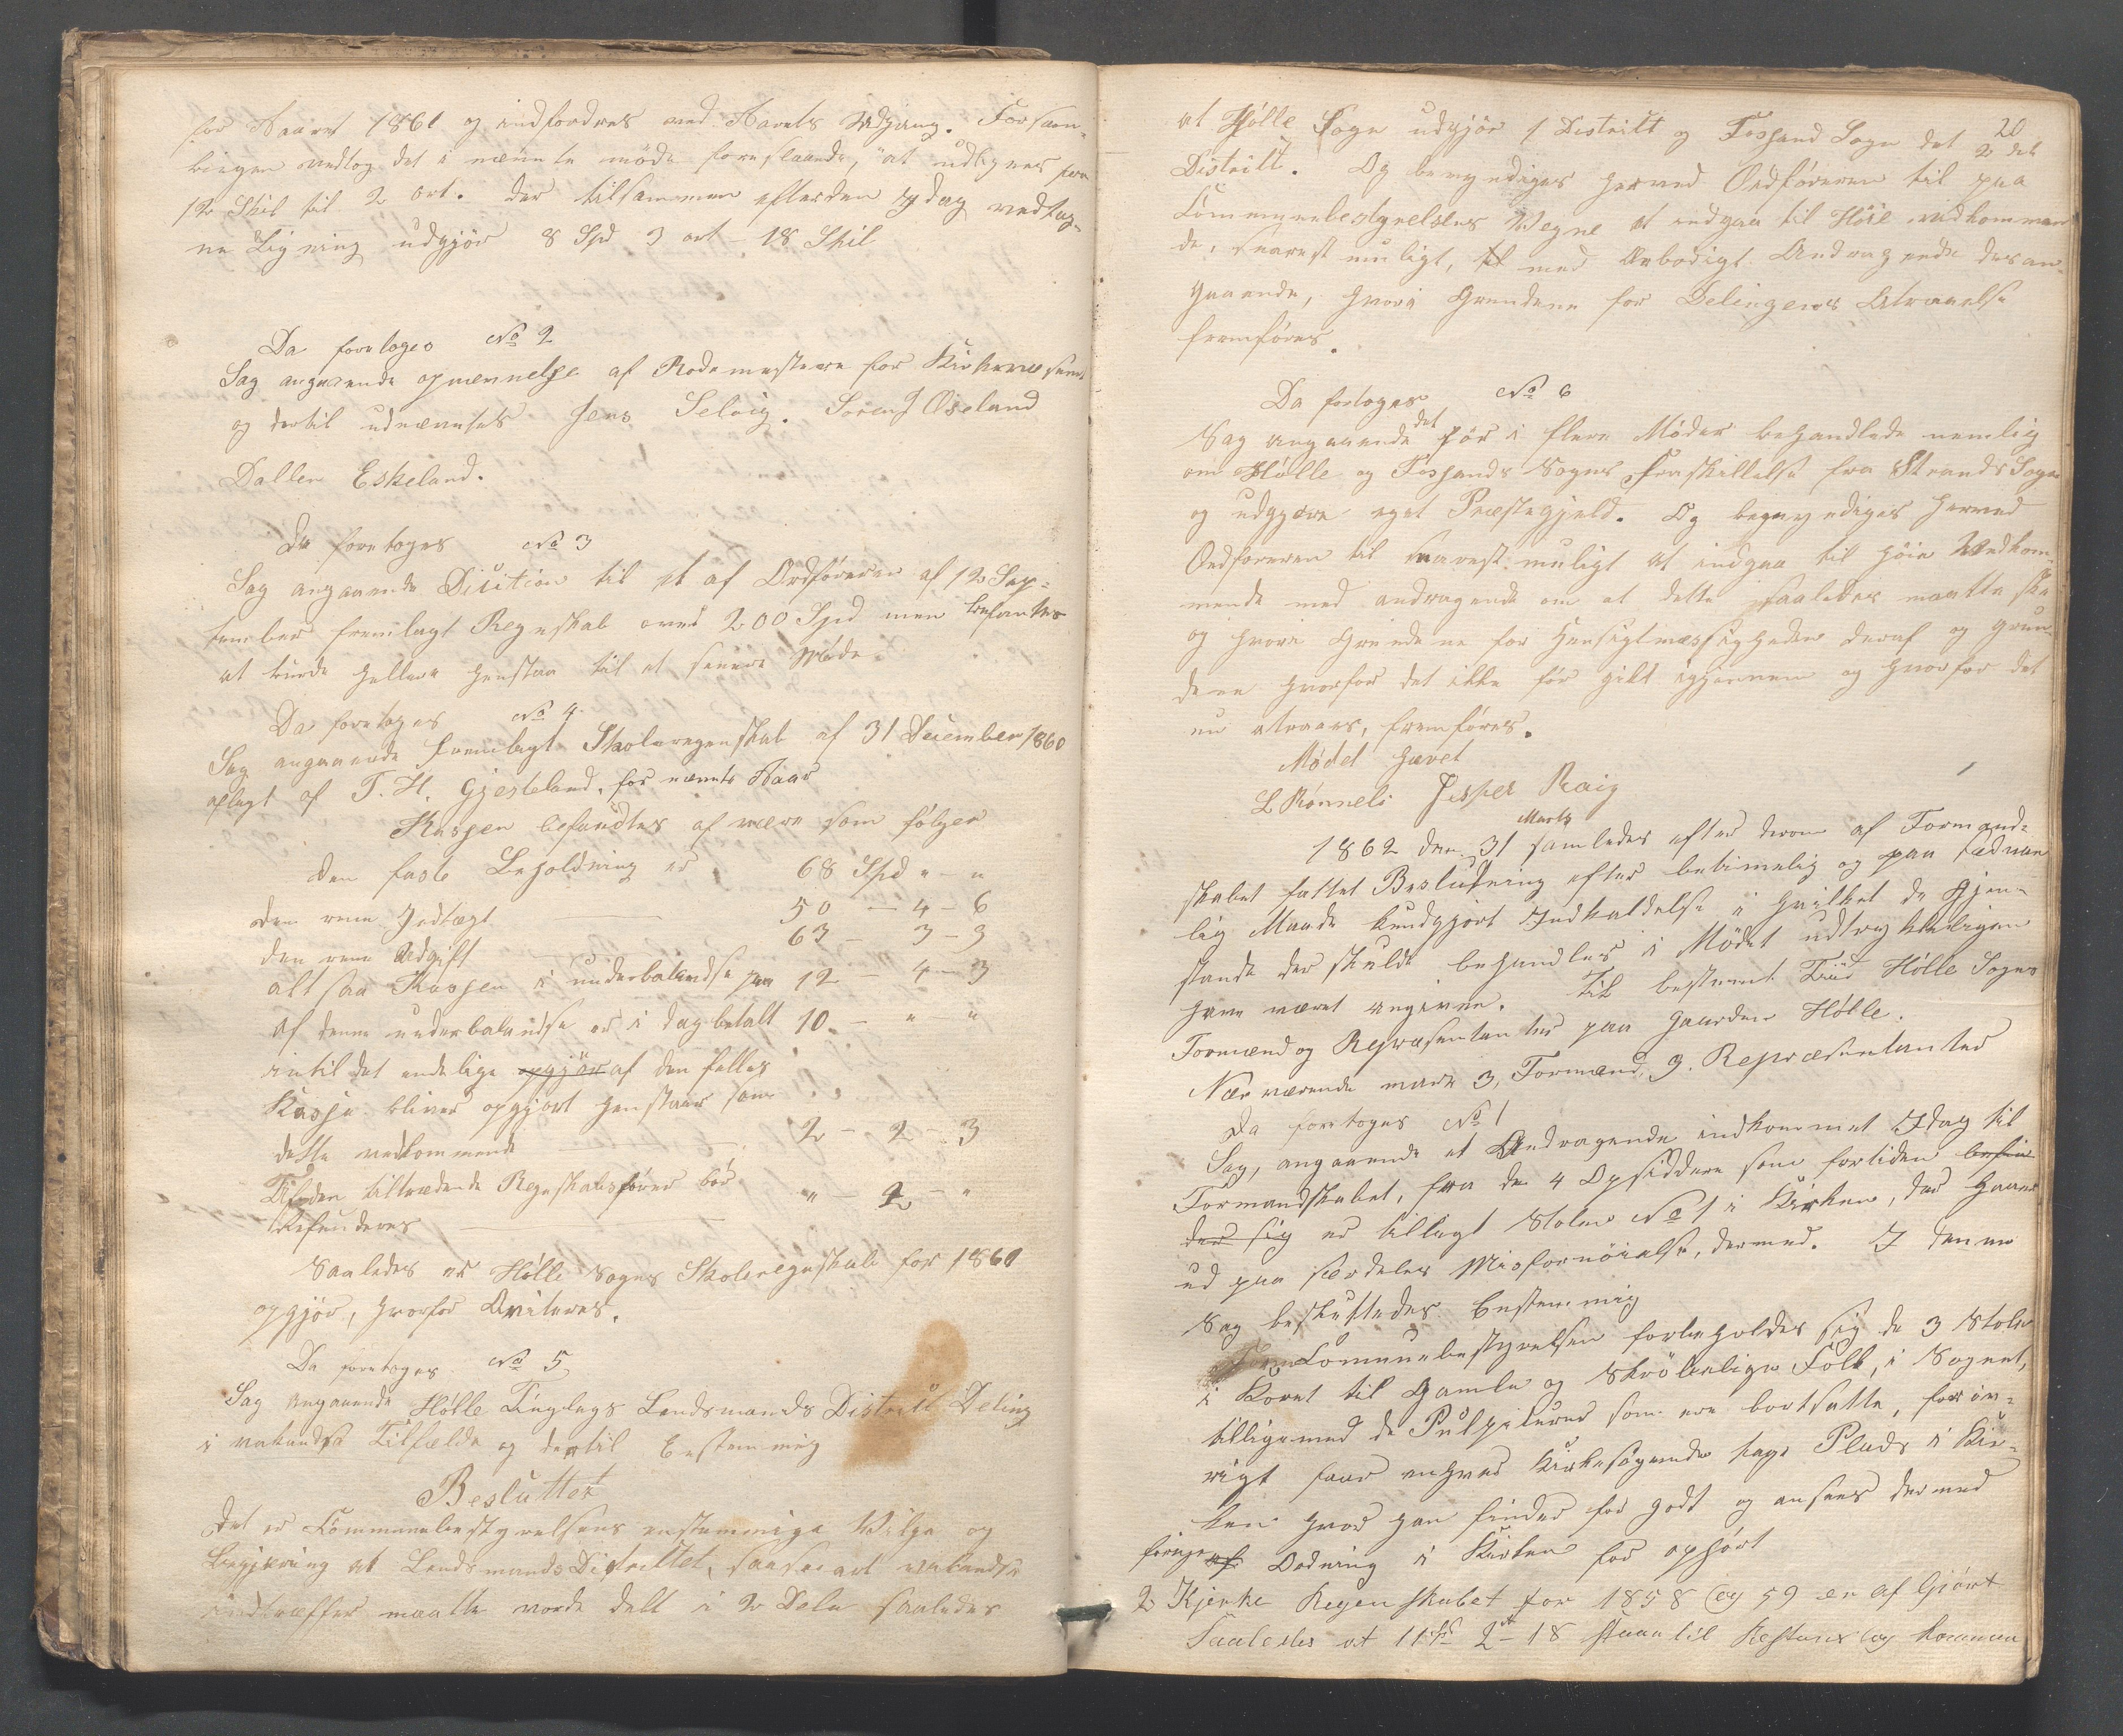 for Aaret 1861 og indfordres ved Aarets Udgang. Forsam-
lingen vedtog det i nævnte møde foreslaaede, at udlignes fra
12 Skil til 2 ort. der tilsammen efter den i dag vedtag-
ne Ligning udgjör 8 Spd 3 ort - 18 Skil
Da foretoges No 2
Sag angaaende opnævnelse af Rodemestere for Kirkerne samt
og dertil udnævntes Jens Selvig. Soren J Øseland
Dallen Eskeland.
Da foretoges No 3
Sag angaaende Dicition til et af Ordföreren af 12 Sep-
tember fremlagt Regnskab over 200 Spd men befantes
at burde hellere henstaa til et senere Möde
Da foretoges No 4
Sag angaaende fremlagt Skoleregenskab af 31 December 1860
aflagt af T. H. Gjesteland, for nævnte Aaar
Kassen befandtes at være som fölger
den faste Beholdning er 68 Spd " - "
den rene Indtægt 50 - 4 - 6
den rene Udgift 63 - 3 - 9
altsaa Kassen i underbalandse paa 12 - 4 - 3
af denne underbalandse er i dag betalt 10 - " - "
intil det endelige opgjör af den felles
Kasse bliver opgjort henstaar som
dette vedkommende 2 - 2 - 3
Af den tiltrædende Regnskabsförer bör
Refunderes " - 2 - "
Saaledes er Hölle Sogns Skoleregnskab for 1860
opgjör, hvorfor Qviteres.
Da foretoges No 5
Sag angaaende Hölle Tinglags Lendsmands Distrikt Deling
i vakandse Tilfælde og dertil Enstemmig
Besluttet
Det er Kommunebestyrelsens enstemmige Vilge og
Begjæring at LendsmandsDistriktet, saasnart vakandse
indtræffer maatte vorde delt i 2 Dele saaledes
20
at Hölle Sogn udgjör 1 Distrikt og Fossand Sogn det 2det
Distrikt. Og bemyndiges herved Ordföreren til paa
Commünebestyrelsens Vegne at indgaa til Höie vedkommen
de, snarest muligt, med Ærbödigt Andragende desan-
gaaende, hvori Grundene for Delingens Atraaelse
fremföres.
Da fortoges No 6
Sag angaaende det för i flere Möder behandlede nemlig
om Hölle og Fossands Sognes Fraskillelse fra Strands Sogn
og udgjøre eget Præstegjeld. Og bemyndiges herved
Ordföreren til snarest muligt at indgaa til höie Vedkom-
mende med andragende om at dette saaledes maatte ske
og hvori Grundene for Hensigtmæssigheden deraf og grun-
dene hvorfor det ikke för gikk igjennem og hvorfor det
nu atraaes, fremföres.
Mødet hævet
L Rönneli Jesper Raig
1862 den 31 Marts samledes efter derom af Formand-
skabet fattet Beslutning efter betimelig og paa sædvan
lig Maade kundgjort Indkaldelse i hvilket de Gjen-
stande der skulde behandles i Mödet udtrykkeligen
have været angivne. Til bestemt Tiid Hölle Sogns
Formænd og Repræsentanter paa Gaarden Hölle.
Nærværende vare 3, Formænd, 9. Repræsentanter
Da foretoges No 1
Sag, angaaende et Andragende indkommet Idag til
Formandskabet, fra de 4 Opsiddere som fortiden befin
der sig er tillagt Stolen No 1 i Kirken, der gaar
ud paa særdeles Misfornöielse, dermed. I denne
Sag besluttedes Enstemmig
Communebestyrelsen forbeholder sig de 3 Stole
i Koret til Gamle og Skröbelige Folk, i Sognet,
tilligemed de Pulpiturer som ere bortsatte, for öv-
rigt faar enhver Kirkesøgende tage Plads i Kir-
ken hvor han finder for godt og ansees dermed
forrige Ordning i Kirken for ophört
2 Kjerke Regenskabet for 1858 og 59 er af Giört
Saaledes at 11 Sp 2 ort 18 staaer til Restans og komman